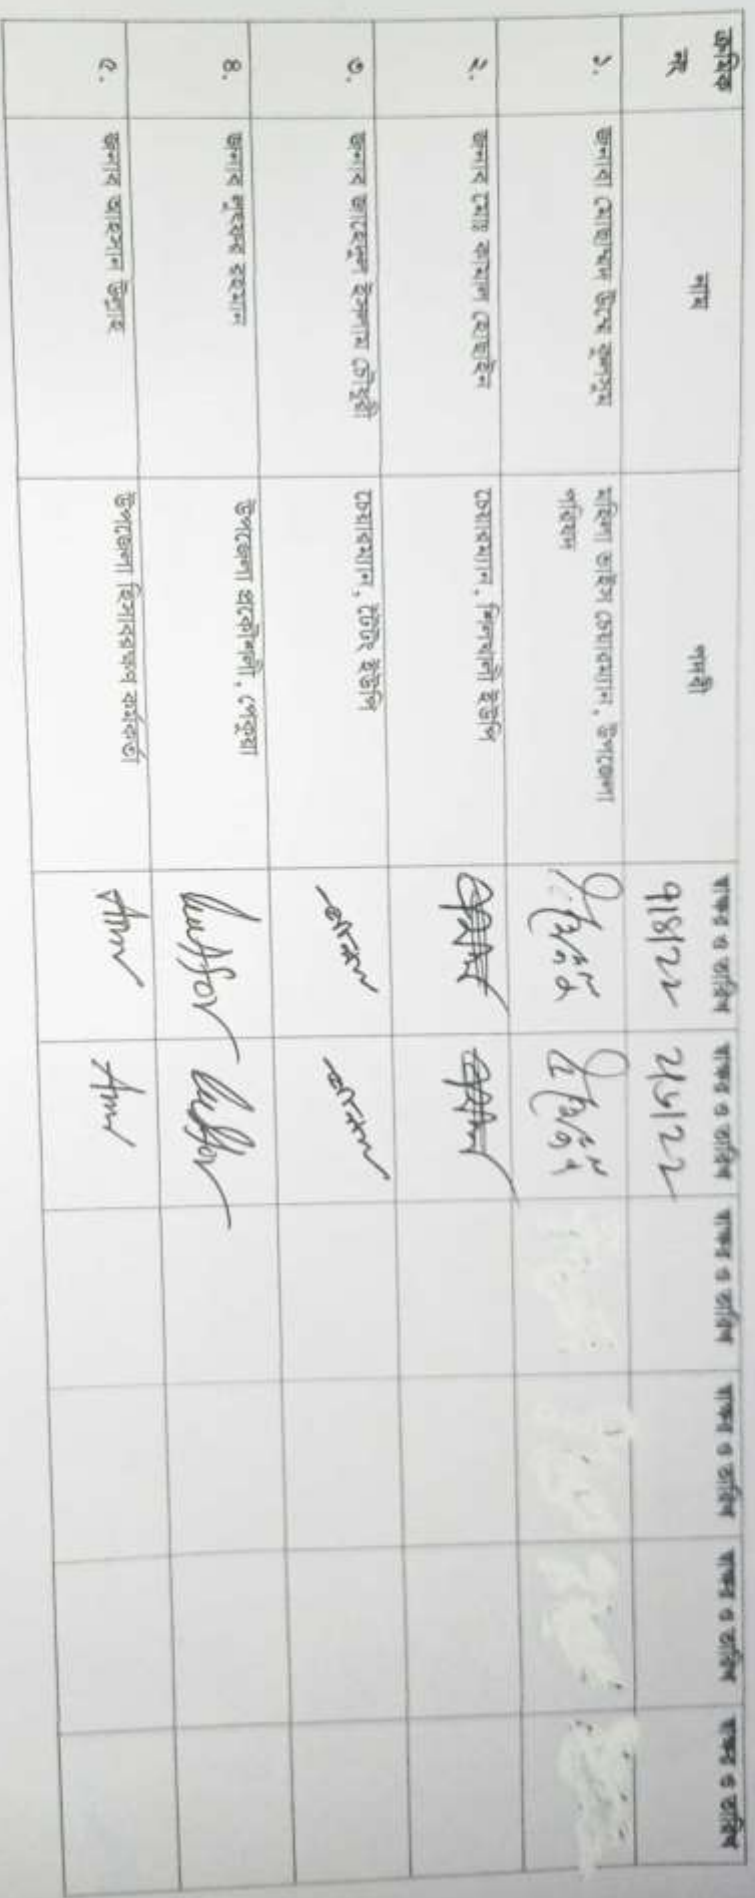 ক্রমিক নং
নাম
পদবী
স্বাক্ষর ও তারিখ
স্বাক্ষর ও তারিখ
স্বাক্ষর ও তারিখ
স্বাক্ষর ও তারিখ
স্বাক্ষর ও তারিখ
স্বাক্ষর ও তারিখ
১.
জনাবা মোছাম্মদ উম্মে কুলসুম
মহিলা ভাইস চেয়ারম্যান, উপজেলা
পরিষদ
২.
জনাব মোঃ কামাল হোছাইন
চেয়ারম্যান, শিলখালী ইউপি
৩.
জনাব জাহেদুল ইসলাম চৌধুরী
চেয়ারম্যান, টৈটং ইউপি
৪.
জনাব লুৎফর রহমান
উপজেলা প্রকৌশলী, পেকুয়া
৫.
জনাব আহসান উল্লাহ
উপজেলা হিসাবরক্ষণ কর্মকর্তা